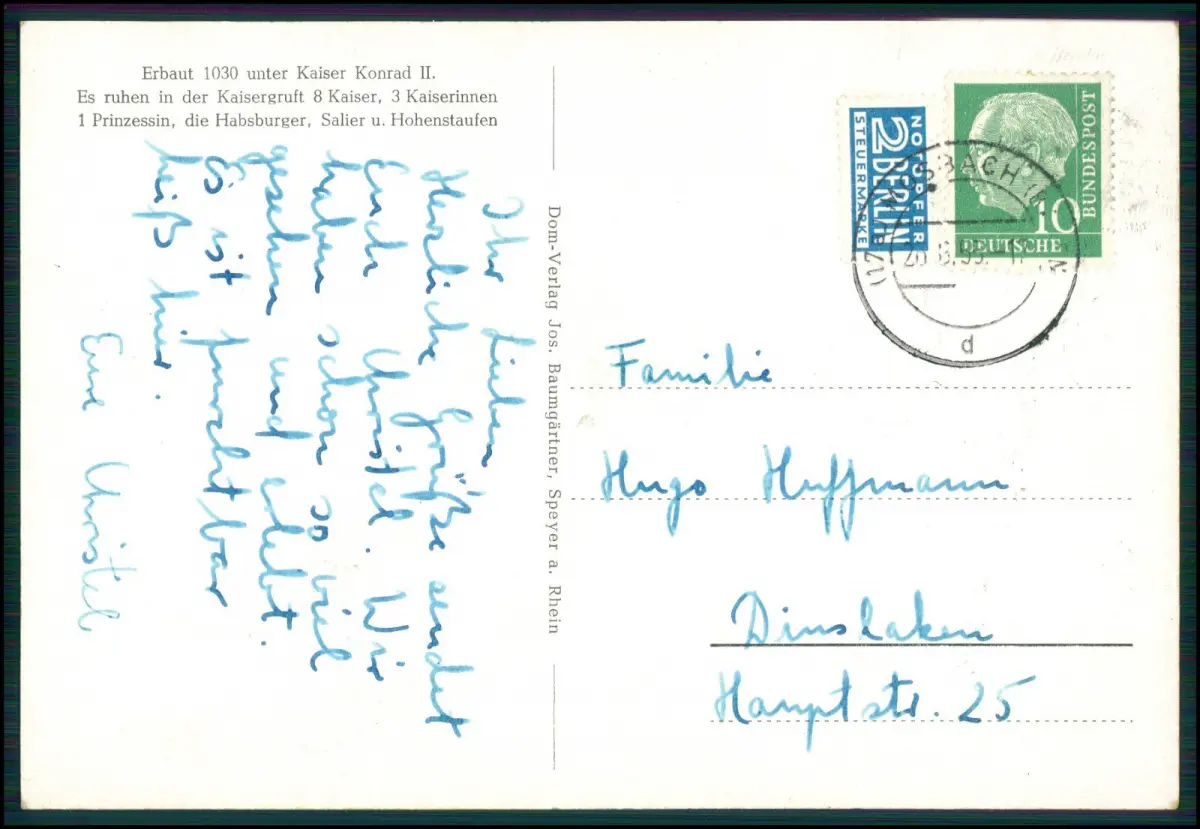 Erbaut 1030 unter Kaiser Konrad II.
Es ruhen in der Kaisergruft 8 Kaiser, 3 Kaiserinnen
1 Prinzessin, die Habsburger, Salier u. Hohenstaufen
Ihr Lieben
Herzliche Grüße sendet
Euch Christel. Wir
haben schon so viel
gesehen und erlebt.
Es ist furchtbar
heiß hier.
Eure Christel
Dom-Verlag Jos. Baumgärtner, Speyer a. Rhein
NOTOPFER
2 BERLIN
STEUERMARKE
10
DEUTSCHE
BUNDESPOST
(17a) MOSBACH
d
Familie
Hugo Huffmann
Dinslaken
Hauptstr. 25